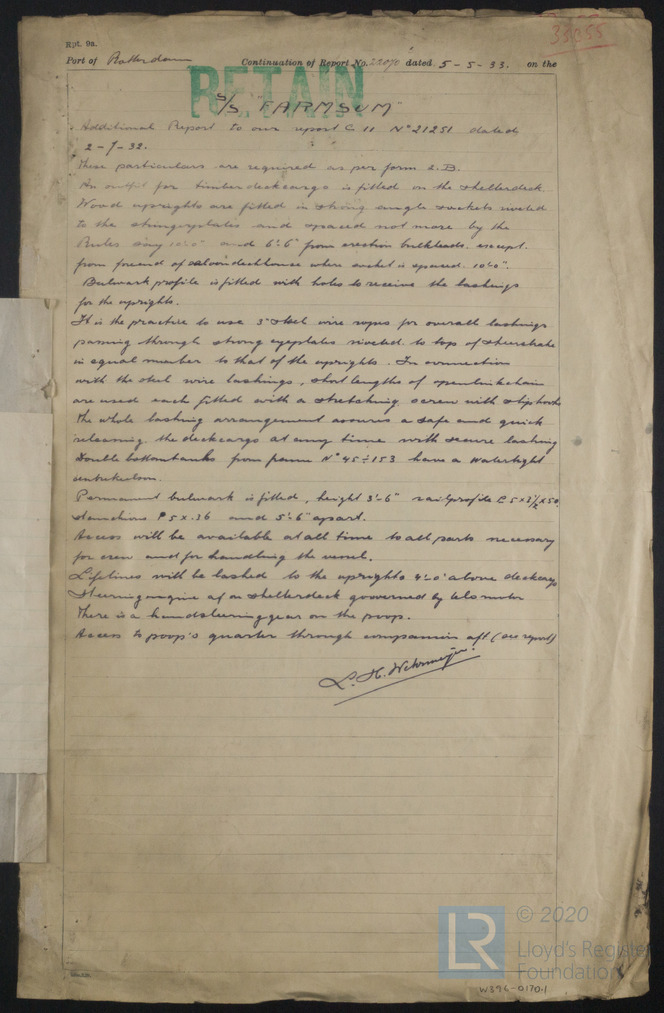 Rpt. 9a.
33355
Port of Rotterdam Continuation of Report No. 22070 dated 5-5-33. on the
RETAIN
S/S "FARMSUM"
Additional Report to our report C 11 No 21251 dated
2-7-32.
These particulars are required as per form 2.B.
An outfit for timberdeckcargo is fitted on the shelterdeck.
Wood uprights are fitted in strong angle sockets riveted
to the stringerplates and spaced not more by the
Rules say 10'-0" and 6'-6" from erection bulkheads. except
from forend of saloondeckhouse where socket is spaced. 10'-0".
Bulwark profile is fitted with holes to receive the lashings
for the uprights.
It is the practice to use 3" steel wire ropes for overall lashings
passing through strong eyeplates riveted to top of sheerstrake
in equal number to that of the uprights. In connection
with the steel wire lashings, short lengths of openlinkchain
are used each fitted with a stretching screw with sliphook
The whole lashing arrangement assures a safe and quick
releasing the deckcargo at any time with secure lashing
Double bottomtanks from frame No 45÷153 have a watertight
centrekeelson.
Permanent bulwark is fitted, height 3'-6" railprofile 5x2½x50
stanchions P5x.36 and 5'-6" apart.
Access will be available at all time to all parts necessary
for crew and for handling the vessel.
Lifelines will be lashed to the uprights 4'-0" above deckcargo
Steeringengine aft on shelterdeck governed by telemotor
There is a handsteeringgear on the poop.
Access to poop's quarter through companion aft (see report)
L. H. Wehrmeijer.
LR
© 2020
Lloyd's Register
Foundation
W396-0170.1